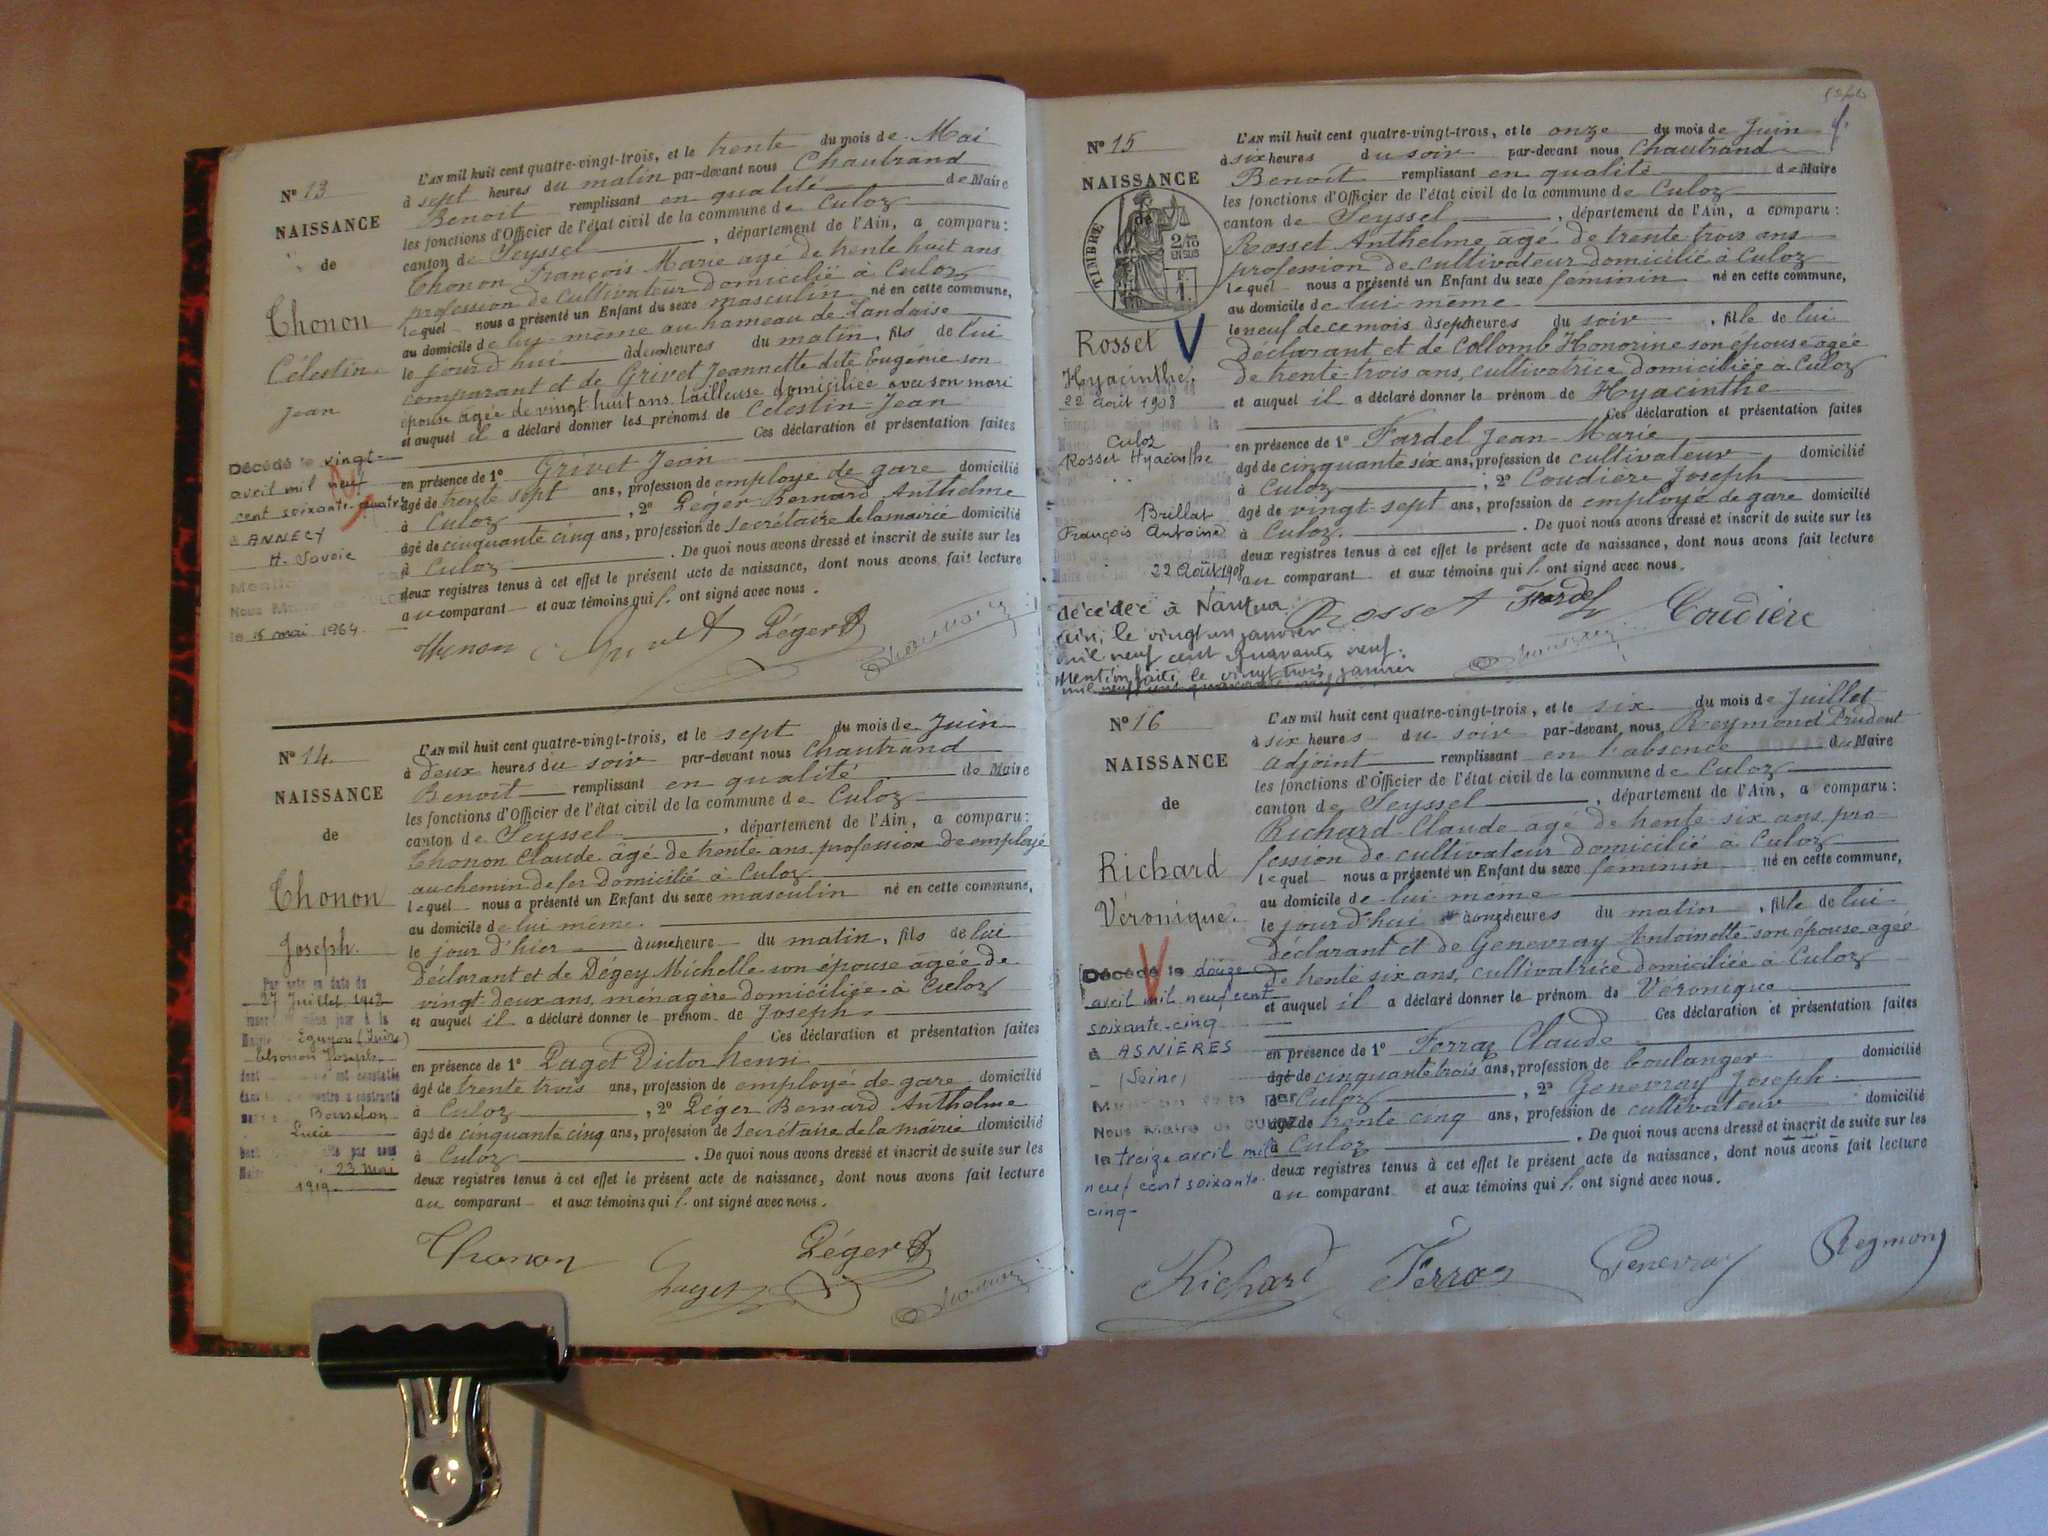 Nº 13
NAISSANCE
de
Thonon
Célestin
Jean
L'AN mil huit cent quatre-vingt-trois, et le trente du mois de Mai
à sept heures du matin par-devant nous Chautrand
Benoit remplissant en qualité de Maire
les fonctions d'Officier de l'état civil de la commune de Culoz
canton de Seyssel, département de l'Ain, a comparu :
Thonon François Marie agé de trente huit ans
profession de cultivateur domicilié à Culoz
lequel nous a présenté un Enfant du sexe masculin né en cette commune,
au domicile de lui-même au hameau de Landaise
le jour d'hui à deux heures du matin, fils de lui
comparant et de Grivet Jeannette dite Eugénie son
épouse agée de vingt huit ans tailleuse domiciliée avec son mari
et auquel il a déclaré donner les prénoms de Célestin-Jean
Ces déclaration et présentation faites
en présence de 1º Grivet Jean
âgé de trente sept ans, profession de employé de gare domicilié
à Culoz, 2º Léger Bernard Anthelme
âgé de cinquante cinq ans, profession de secrétaire de la mairie domicilié
à Culoz. De quoi nous avons dressé et inscrit de suite sur les
deux registres tenus à cet effet le présent acte de naissance, dont nous avons fait lecture
au comparant et aux témoins qui ont signé avec nous.
Thonon Grivet Léger B
Décédé le vingt-
avril mil neuf
cent soixante-quatre
à ANNECY
H. Savoie
le 15 mai 1964
Nº 14
NAISSANCE
de
Thonon
Joseph
L'AN mil huit cent quatre-vingt-trois, et le sept du mois de Juin
à deux heures du soir par-devant nous Chautrand
Benoit remplissant en qualité de Maire
les fonctions d'Officier de l'état civil de la commune de Culoz
canton de Seyssel, département de l'Ain, a comparu :
Thonon Claude âgé de trente ans profession de employé
au chemin de fer domicilié à Culoz
lequel nous a présenté un Enfant du sexe masculin né en cette commune,
au domicile de lui même.
le jour d'hier à une heure du matin, fils de lui
déclarant et de Dégey Michelle son épouse agée de
vingt deux ans, ménagère domiciliée à Culoz
et auquel il a déclaré donner le prénom de Joseph
Ces déclaration et présentation faites
en présence de 1º Paget Victor Henri
âgé de trente trois ans, profession de employé de gare domicilié
à Culoz, 2º Léger Bernard Anthelme
âgé de cinquante cinq ans, profession de secrétaire de la mairie domicilié
à Culoz. De quoi nous avons dressé et inscrit de suite sur les
deux registres tenus à cet effet le présent acte de naissance, dont nous avons fait lecture
au comparant et aux témoins qui ont signé avec nous.
Thonon Paget Léger B
Par acte en date du
27 Juillet
Thonon Joseph
Lucie
23 Mai
1919
Nº 15
NAISSANCE
de
TIMBRE
2/10
EN SUS
Rosset V
Hyacinthe
L'AN mil huit cent quatre-vingt-trois, et le onze du mois de Juin
à six heures du soir par-devant nous Chautrand
Benoit remplissant en qualité de Maire
les fonctions d'Officier de l'état civil de la commune de Culoz
canton de Seyssel, département de l'Ain, a comparu :
Rosset Anthelme âgé de trente trois ans
profession de cultivateur domicilié à Culoz
lequel nous a présenté un Enfant du sexe féminin né en cette commune,
au domicile de lui-même
le neuf de ce mois à sept heures du soir, fille de lui
déclarant et de Collomb Honorine son épouse agée
de trente-trois ans, cultivatrice domiciliée à Culoz
et auquel il a déclaré donner le prénom de Hyacinthe
Ces déclaration et présentation faites
en présence de 1º Fardel Jean-Marie
âgé de cinquante six ans, profession de cultivateur domicilié
à Culoz, 2º Coudière Joseph
âgé de vingt-sept ans, profession de employé de gare domicilié
à Culoz. De quoi nous avons dressé et inscrit de suite sur les
deux registres tenus à cet effet le présent acte de naissance, dont nous avons fait lecture
au comparant et aux témoins qui ont signé avec nous.
Rosset Fardel Coudière
22 août 1908
Culoz
Rosset Hyacinthe
Brillat
François Antoine
22 Août 1908
décédée à Nantua
Ain, le vingt un janvier
mil neuf cent quarante neuf.
Mention faite le vingt trois janvier
mil neuf cent quarante neuf
Nº 16
NAISSANCE
de
Richard
Véronique
L'AN mil huit cent quatre-vingt-trois, et le six du mois de Juillet
à six heures du soir par-devant nous Reymond Prudent
adjoint remplissant en l'absence du Maire
les fonctions d'Officier de l'état civil de la commune de Culoz
canton de Seyssel, département de l'Ain, a comparu :
Richard Claude âgé de trente six ans, pro-
fession de cultivateur domicilié à Culoz
lequel nous a présenté un Enfant du sexe féminin né en cette commune,
au domicile de lui même
le jour d'hui à onze heures du matin, fille de lui
déclarant et de Genevray Antoinette son épouse agée
de trente six ans, cultivatrice domiciliée à Culoz
et auquel il a déclaré donner le prénom de Véronique
Ces déclaration et présentation faites
en présence de 1º Ferraz Claude
âgé de cinquante trois ans, profession de boulanger domicilié
à Culoz, 2º Genevray Joseph
âgé de trente cinq ans, profession de cultivateur domicilié
à Culoz. De quoi nous avons dressé et inscrit de suite sur les
deux registres tenus à cet effet le présent acte de naissance, dont nous avons fait lecture
au comparant et aux témoins qui ont signé avec nous.
Richard Ferraz Genevray Reymond
Décédé le douze
avril mil neuf cent
soixante-cinq
à ASNIERES
(Seine)
Nous Maire de CULOZ
le treize avril mil
neuf cent soixante-
cinq-